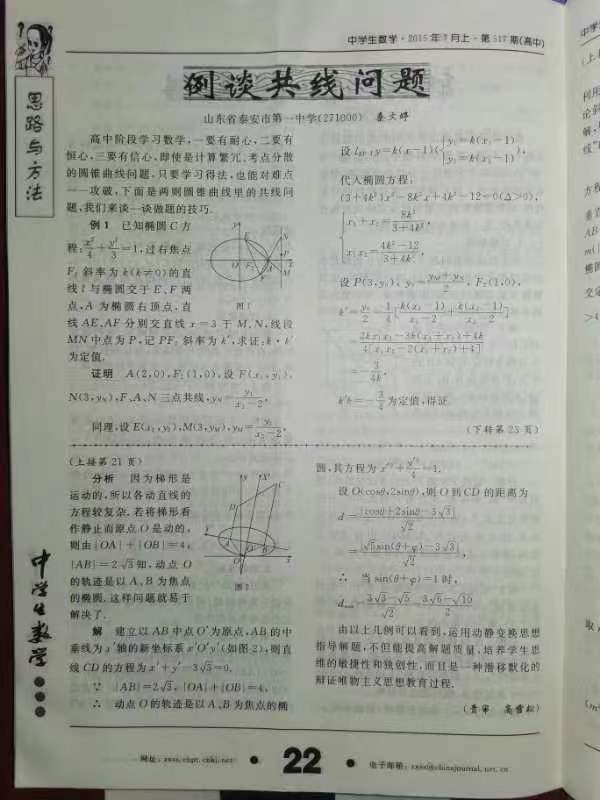 中学生数学·2015年7月上·第517期(高中)
思路与方法
例谈共线问题
山东省泰安市第一中学(271000) 秦文婷
高中阶段学习数学,一要有耐心,二要有
恒心,三要有信心,即使是计算繁冗、考点分散
的圆锥曲线问题,只要学习得法,也能对难点
一一攻破,下面是两则圆锥曲线里的共线问
题,我们来谈一谈做题的技巧.
例1 已知椭圆C方
程:x²/4+y²/3=1,过右焦点
F₂斜率为k(k≠0)的直
线l与椭圆交于E、F两
点,A为椭圆右顶点,直
线AE、AF分别交直线x=3于M、N,线段
MN中点为P,记PF₂斜率为k′,求证:k·k′
为定值.
图1
证明 A(2,0),F₂(1,0),设F(x₁,y₁),
N(3,y_N),F、A、N三点共线,y_N=y₁/(x₁-2),
同理,设E(x₂,y₂),M(3,y_M),y_M=y₂/(x₂-2),
设l_EF:y=k(x-1){y₁=k(x₁-1)
y₂=k(x₂-1)
代入椭圆方程:
(3+4k²)x²-8k²x+4k²-12=0(Δ>0),
{x₁+x₂=8k²/(3+4k²),
x₁x₂=(4k²-12)/(3+4k²),
设P(3,y₀),y₀=(y_M+y_N)/2,F₂(1,0),
k′=y₀/2=1/4[k(x₁-1)/(x₁-2)+k(x₂-1)/(x₂-2)]
=(2kx₁x₂-3k(x₁+x₂)+4k)/(4[x₁x₂-2(x₁+x₂)+4])
=-3/(4k),
k′k=-3/4为定值,得证.
(下转第23页)
(上接第21页)
分析 因为梯形是
运动的,所以各动直线的
方程较复杂,若将梯形看
作静止而原点O是动的,
则由|OA|+|OB|=4,
|AB|=2√3知,动点O
的轨迹是以A、B为焦点
的椭圆.这样问题就易于
解决了.
图2
解 建立以AB中点O′为原点,AB的中
垂线为x′轴的新坐标系x′O′y′(如图2),则直
线CD的方程为x′+y′-3√3=0.
∵ |AB|=2√3,|OA|+|OB|=4,
∴ 动点O的轨迹是以A、B为焦点的椭
圆,其方程为x′²+y′²/4=1.
设O(cosθ,2sinθ),则O到CD的距离为
d=|cosθ+2sinθ-3√3|/√2
=|√5sin(θ+φ)-3√3|/√2,
∴ 当sin(θ+φ)=1时,
d_min=(3√3-√5)/√2=(3√6-√10)/2.
由以上几例可以看到,运用动静变换思想
指导解题,不但能提高解题质量,培养学生思
维的敏捷性和独创性,而且是一种潜移默化的
辩证唯物主义思想教育过程.
(责审 高雪松)
中学生数学
网址:zxss.chpt.cnki.net
22
电子邮箱:zxss@chinajournal.net.cn